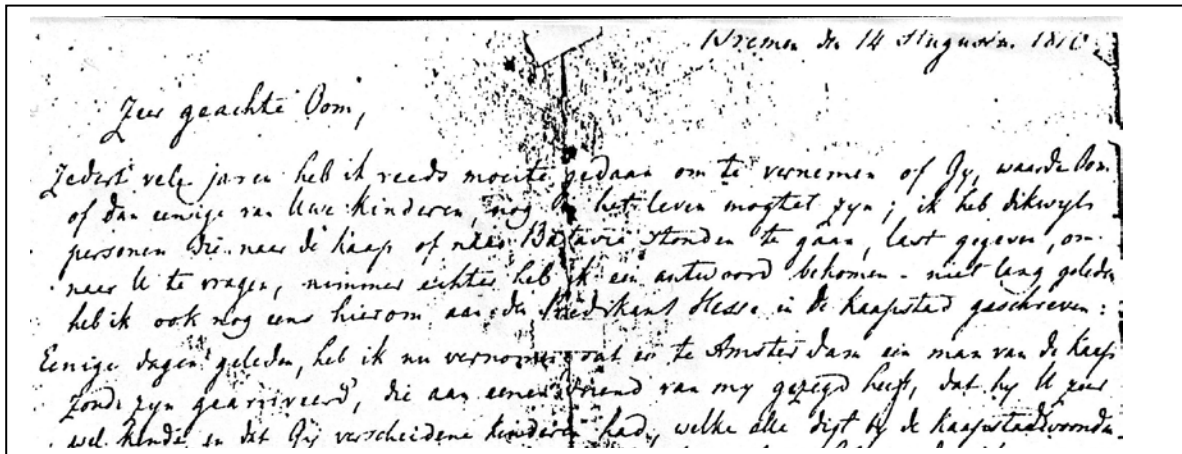 Bremen den 14 Augustus 181
Zeer geachte Oom,
Zedert vele jaren heb ik reeds moeite gedaan om te vernemen of Gy, waarde Oom
of dan eenige van Uwe Kinderen, nog in het leven mogtet zyn; ik heb dikwyls
personen die naar de Kaap of naar Batavia stonden te gaan, last gegeven, om
naar U te vragen, nimmer echter heb ik een antwoord bekomen - niet lang geleden
heb ik ook nog eens hierom aan den Predikant Hesse in de Kaapstad geschreven:
Eenige dagen geleden, heb ik nu vernomen dat er te Amsterdam een man van de Kaap
zoude zyn gearriveerd, die aan eenen vriend van my gezegd heeft, dat hy U zeer
wel kende en dat Gy verscheidene kinderen had, welke alle digt by de Kaapstad woonden